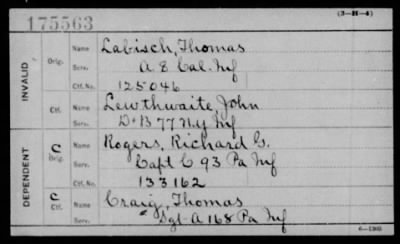 175563
(3-H-4)
INVALID
Orig.
Name Labisch, Thomas
Serv. A 8 Cal. Inf
Ctf. No. 125046
Ctf.
Name Lewthwaite, John
Serv. D+B 77 N.Y Inf
DEPENDENT
C Orig.
Name Rogers, Richard G.
Serv. Capt C 93 Pa Inf
Ctf. No. 133162
C Ctf.
Name Craig, Thomas
Serv. Sgt-A 168 Pa Inf